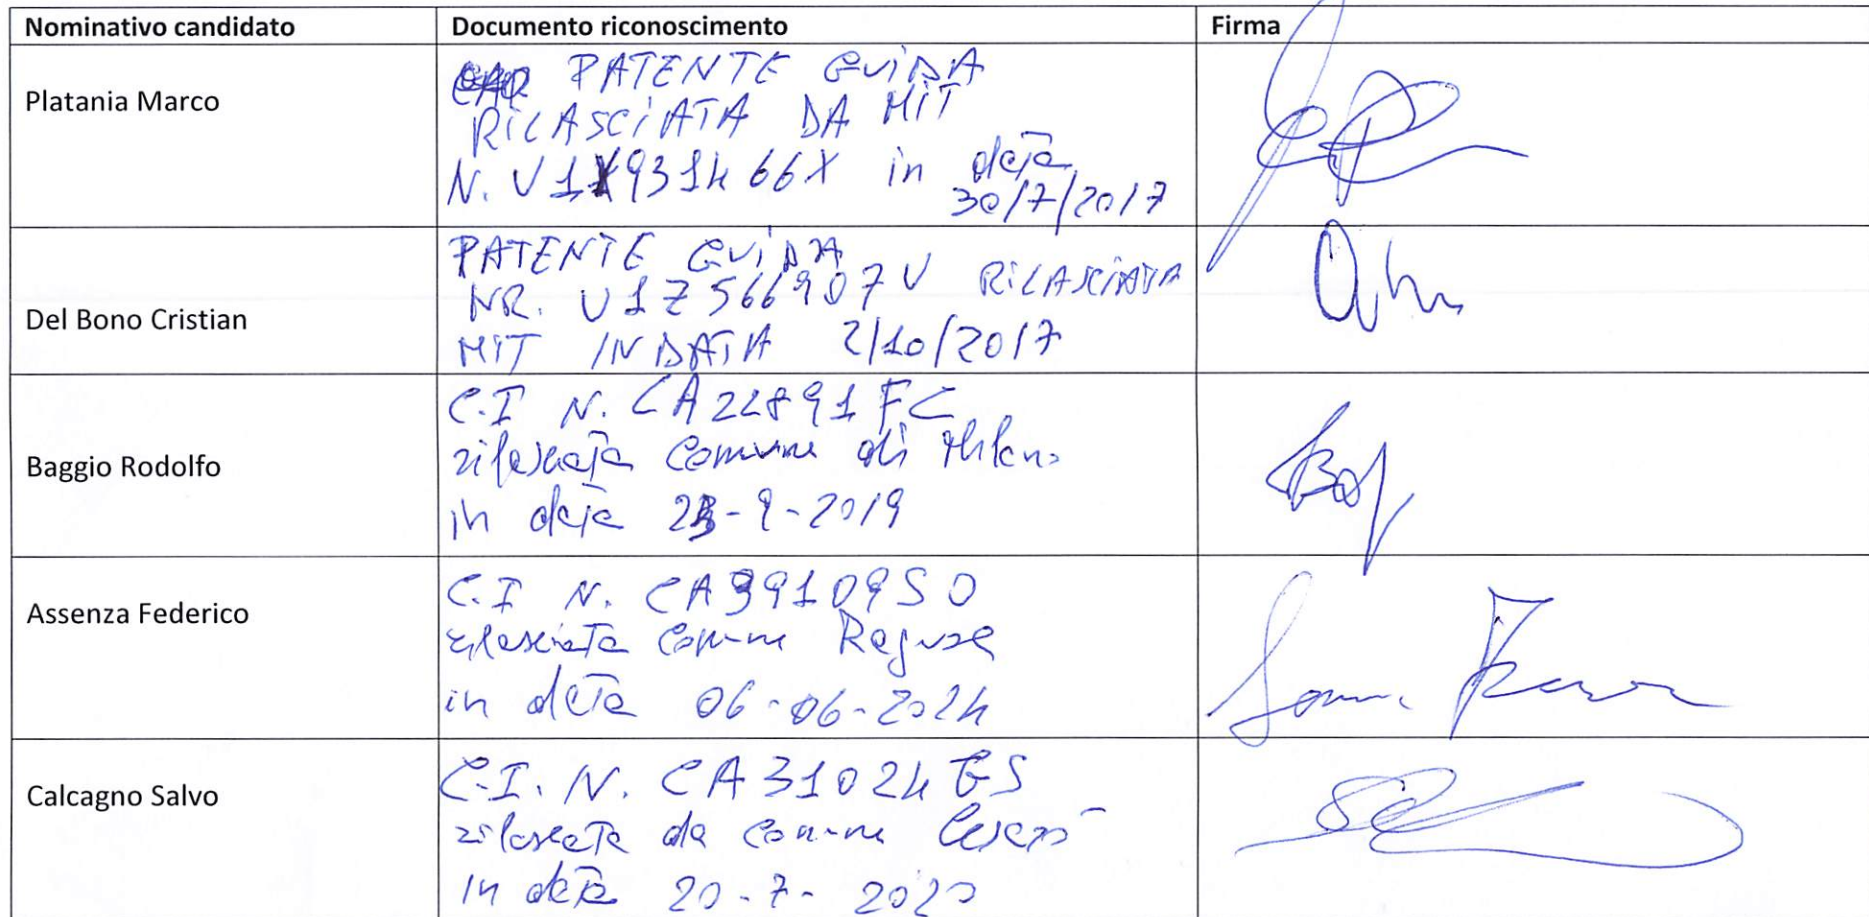 Nominativo candidato Documento riconoscimento Firma
Platania Marco
PATENTE GUIDA
RILASCIATA DA MIT
N. U1 931466X in data
30/7/2017
Del Bono Cristian
PATENTE GUIDA
NR. U1Z566907V RILASCIATA
MIT IN DATA 2/10/2017
Baggio Rodolfo
C.I N. CA22891FC
rilasciata Comune di Milano
in data 23-9-2019
Assenza Federico
C.I N. CA39109SO
rilasciata Comune Ragusa
in data 06-06-2024
Calcagno Salvo
C.I. N. CA31024GS
rilasciata da Comune Cesarò
in data 20-7-2020